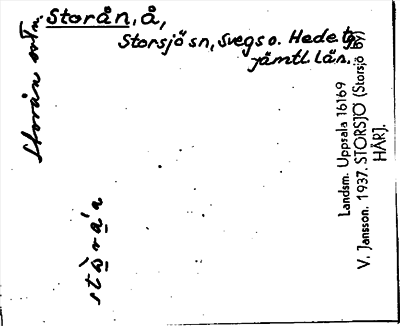 Storån, å,
Storsjö sn, Svegs o. Hede tg,
Jämtl län.
Storån
stòrá'n
Landsm. Uppsala 16169
V. Jansson. 1937. STORSJÖ (Storsjö by)
HÄRJ.